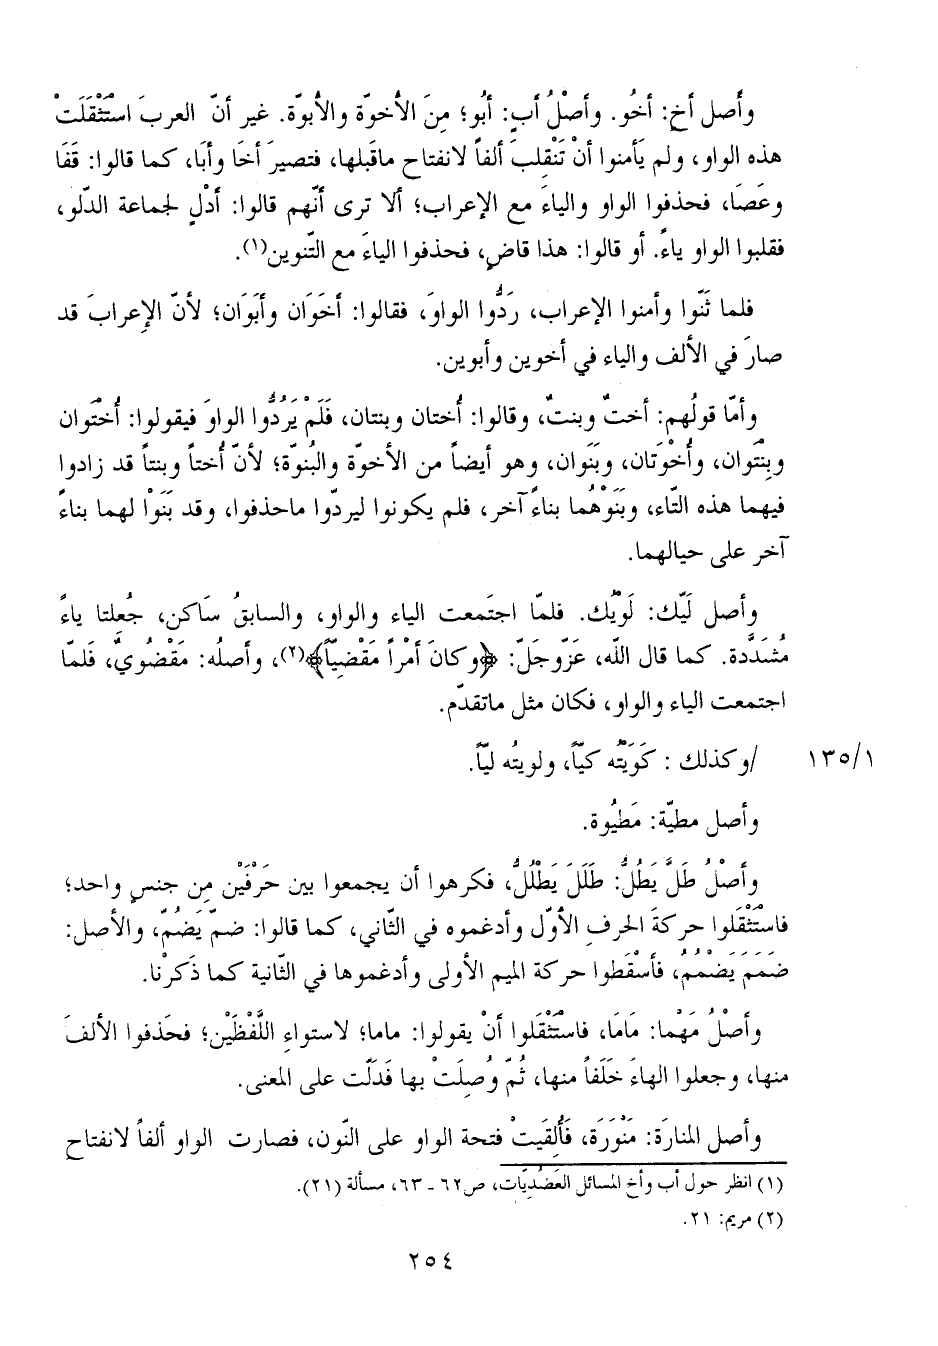 وأَصل أخ: أخُو. وأصْلُ أبٍ: أبُو؛ مِنَ الأُخوّة والأبوّة. غير أنّ العربَ استَثْقَلَتْ
هذه الواو، ولم يَأمنوا أنْ تَنْقلِبَ ألفاً لانفتاح ماقبلها، فتصيرَ أخَا وأبَا، كما قالوا: قَفَا
وعَصَا، فحذفوا الواو والياءَ مع الإعراب؛ ألا ترى أنّهم قالوا: أدْلٍ لجماعة الدّلو،
فقلبوا الواو ياءً. أو قالوا: هذا قاضٍ، فحذفوا الياءَ مع التّنوين(١).
فلما ثَنّوا وأمنوا الإعراب، رَدُّوا الواوَ، فقالوا: أخَوَان وأبَوَان؛ لأنّ الإعرابَ قد
صارَ في الألف والياء في أخوين وأبوين.
وأمّا قولُهم: أختٌ وبنتٌ، وقالوا: أُختان وبنتان، فَلَمْ يَرُدُّوا الواوَ فيقولوا: أُختَوان
وبِنْتَوان، وأُخْوَتان، وبَنَوان، وهو أيضاً من الأخوّة والبُنوّة؛ لأنّ أُختاً وبنتاً قد زادوا
فيهما هذه التّاء، وبَنَوْهُما بناءً آخر، فلم يكونوا ليردّوا ماحذفوا، وقد بَنَوْا لهما بناءً
آخر على حيالهما.
وأصل لَيّك: لَوْيُك. فلمّا اجتمعت الياء والواو، والسابقُ سَاكن، جُعِلتا ياءً
مُشَدَّدة. كما قال اللّه، عَزّوجَلّ: ﴿وكانَ أمْراً مَقْضِيّاً﴾(٢)، وأصلُه: مَقْضُويٌ، فَلمّا
اجتمعت الياء والواو، فكان مثل ماتقدّم.
١٣٥/١ /وكذلك : كَوَيْتُه كيّاً، ولويتُه ليّاً.
وأصل مطيّة: مَطْيُوة.
وأصْلُ طَلَّ يَطُلُّ: طَلَلَ يَطْلُلُ، فكرهوا أن يجمعوا بين حَرْفَيْن مِن جنسٍ واحد؛
فاسْتَثْقَلوا حركةَ الحرفِ الأوّل وأدغموه في الثّاني، كما قالوا: ضمّ يَضُمّ، والأصل:
ضَمَمَ يَضْمُمُ، فأسْقَطوا حركة الميم الأولى وأدغموها في الثّانية كما ذَكرْنا.
وأصْلُ مَهْما: مَامَا، فاستَثْقَلوا أنْ يقولوا: ماما؛ لاستواءِ اللَّفْظَيْن؛ فحَذفوا الألفَ
منها، وجعلوا الهاءَ خَلَفاً منها، ثُمّ وُصِلَتْ بها فَدَلّت على المعنى.
وأصل المنارَة: مَنْوَرَة، فَأُلقِيَتْ فتحة الواو على النّون، فصارت الواو ألفاً لانفتاح
(١) انظر حول أب وأخ المسائل العَضُديّات، ص٦٢ـ٦٣، مسألة (٢١).
(٢) مريم: ٢١.
٢٥٤